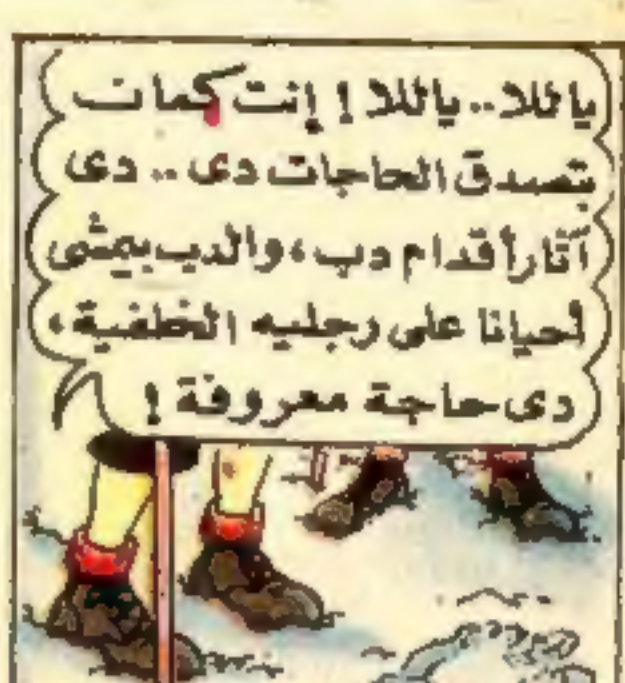 ياللا.. ياللا ! إنت كمان
بتصدق الحاجات دى .. دى
آثار أقدام دب ، والدب بيمشى
أحيانا على رجليه الخلفية ،
دى حاجة معروفة !